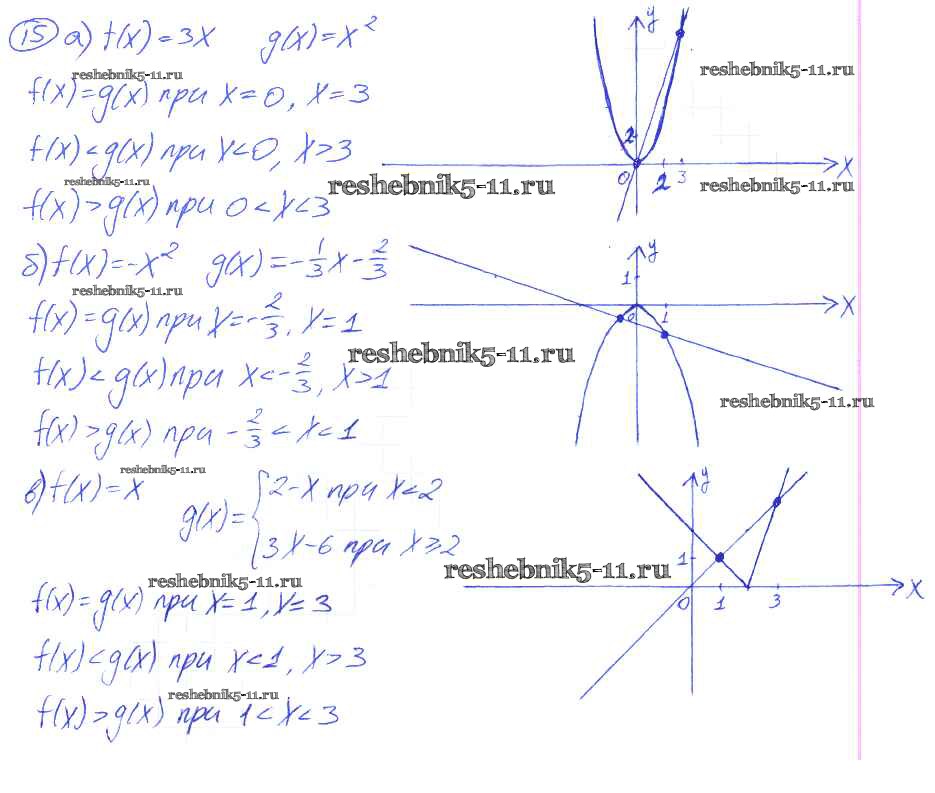 15 а) f(x)=3x g(x)=x²
reshebnik5-11.ru
f(x)=g(x) при x=0, x=3
f(x)<g(x) при x<0, x>3
reshebnik5-11.ru
f(x)>g(x) при 0<x<3
y
reshebnik5-11.ru
2
0 2 3 x
reshebnik5-11.ru
reshebnik5-11.ru
б) f(x)=-x² g(x)=-1/3x-2/3
reshebnik5-11.ru
f(x)=g(x) при x=-2/3, x=1
f(x)<g(x) при x<-2/3, x>1
f(x)>g(x) при -2/3<x<1
y
1
0 1 x
reshebnik5-11.ru
reshebnik5-11.ru
reshebnik5-11.ru
в) f(x)=x
g(x)={2-x при x<2
3x-6 при x≥2
reshebnik5-11.ru
f(x)=g(x) при x=1, x=3
f(x)<g(x) при x<1, x>3
reshebnik5-11.ru
f(x)>g(x) при 1<x<3
y
1
reshebnik5-11.ru
0 1 3 x